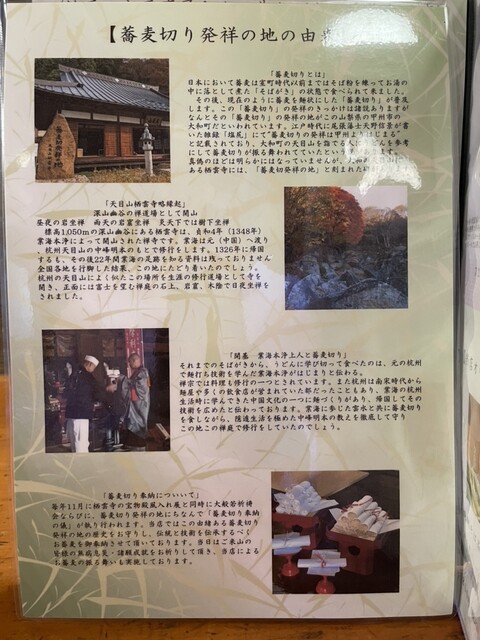 【蕎麦切り発祥の地の由
「蕎麦切りとは」
日本において蕎麦は室町時代以前まではそば粉を練ってお湯の
中に落として煮た「そばがき」の状態で食べられて来ました。
その後、現在のように蕎麦を麺状にした「蕎麦切り」が普及
します。この「蕎麦切り」の発祥のきっかけは諸説ありますが
なんとその「蕎麦切り」の発祥の地がこの山梨県の甲州市の
大和町だといわれています。江戸時代に尾張藩士天野信景が書
いた雑録「塩尻」にて"蕎麦切りの発祥は甲州よりはじまる"
と記載されており、大和町の天目山を詣でる人にうどんを参考
にして蕎麦切りが振る舞われていたという事があります。
真偽のほどは明らかにはなっていませんが、
ある栖雲寺には、「蕎麦切り発祥の地」と刻まれた
「天目山栖雲寺略縁起」
深山幽谷の禅道場として開山
昼夜の岩坐禅 雨天の岩窟坐禅 炎天下では樹下坐禅
標高1,050mの深山幽谷にある栖雲寺は、貞和4年(1348年)
業海本浄によって開山された禅寺です。業海は元(中国)へ渡り
、杭州天目山の中峰明本のもとで修行をします。1326年に帰国
するも、その後22年間業海の足跡を知る資料は残っておりません
全国各地を行脚した結果、この地にたどり着いたのでしょう。
杭州の天目山によく似たこの場所を生涯の修行道場として寺を
開き、正面には富士を望む禅庭の石上、岩窟、木陰で日夜坐禅を
されました。
「開基 業海本浄上人と蕎麦切り」
それまでのそばがきから、うどんに学び切って食べたのは、元の杭州
で麺打ち技術を学んだ業海本浄がはじまりと伝わる。
禅宗では料理も修行の一つとされています。また杭州は南宋時代から
麺屋や多くの飲食店が営まれていた都だったこともあり、業海の杭州
生活時に学んできた中国文化の一つに麺づくりがあり、帰国してその
技術を広めたと伝わっております。業海に参じた雲水と共に蕎麦切り
を食しながら、隠遁生活を極めた中峰明本の教えを徹底して守り
この地この禅庭で修行をしていたのでしょう。
「蕎麦切り奉納についいて」
毎年11月に栖雲寺の宝物館風入れ展と同時に大般若祈祷
会ならびに、蕎麦切り発祥の地にちなんで「蕎麦切り奉納
の儀」が執り行われます。当店ではこの由緒ある蕎麦切り
発祥の地の歴史をお守りし、伝統と技術を伝承するべく
お蕎麦を御奉納させて頂いております。当日はご来山の
皆様の無病息災・諸願成就をお祈りして頂き、当店による
お蕎麦の振る舞いも実施しております。